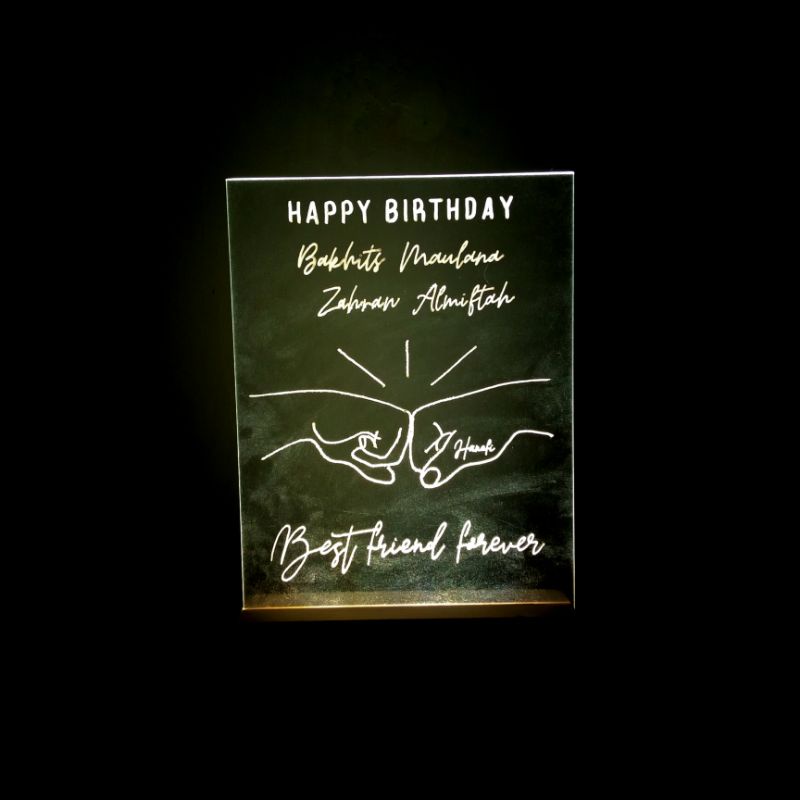 HAPPY BIRTHDAY
Bakhits Maulana
Zahran Almiftah
Hanafi
Best friend forever